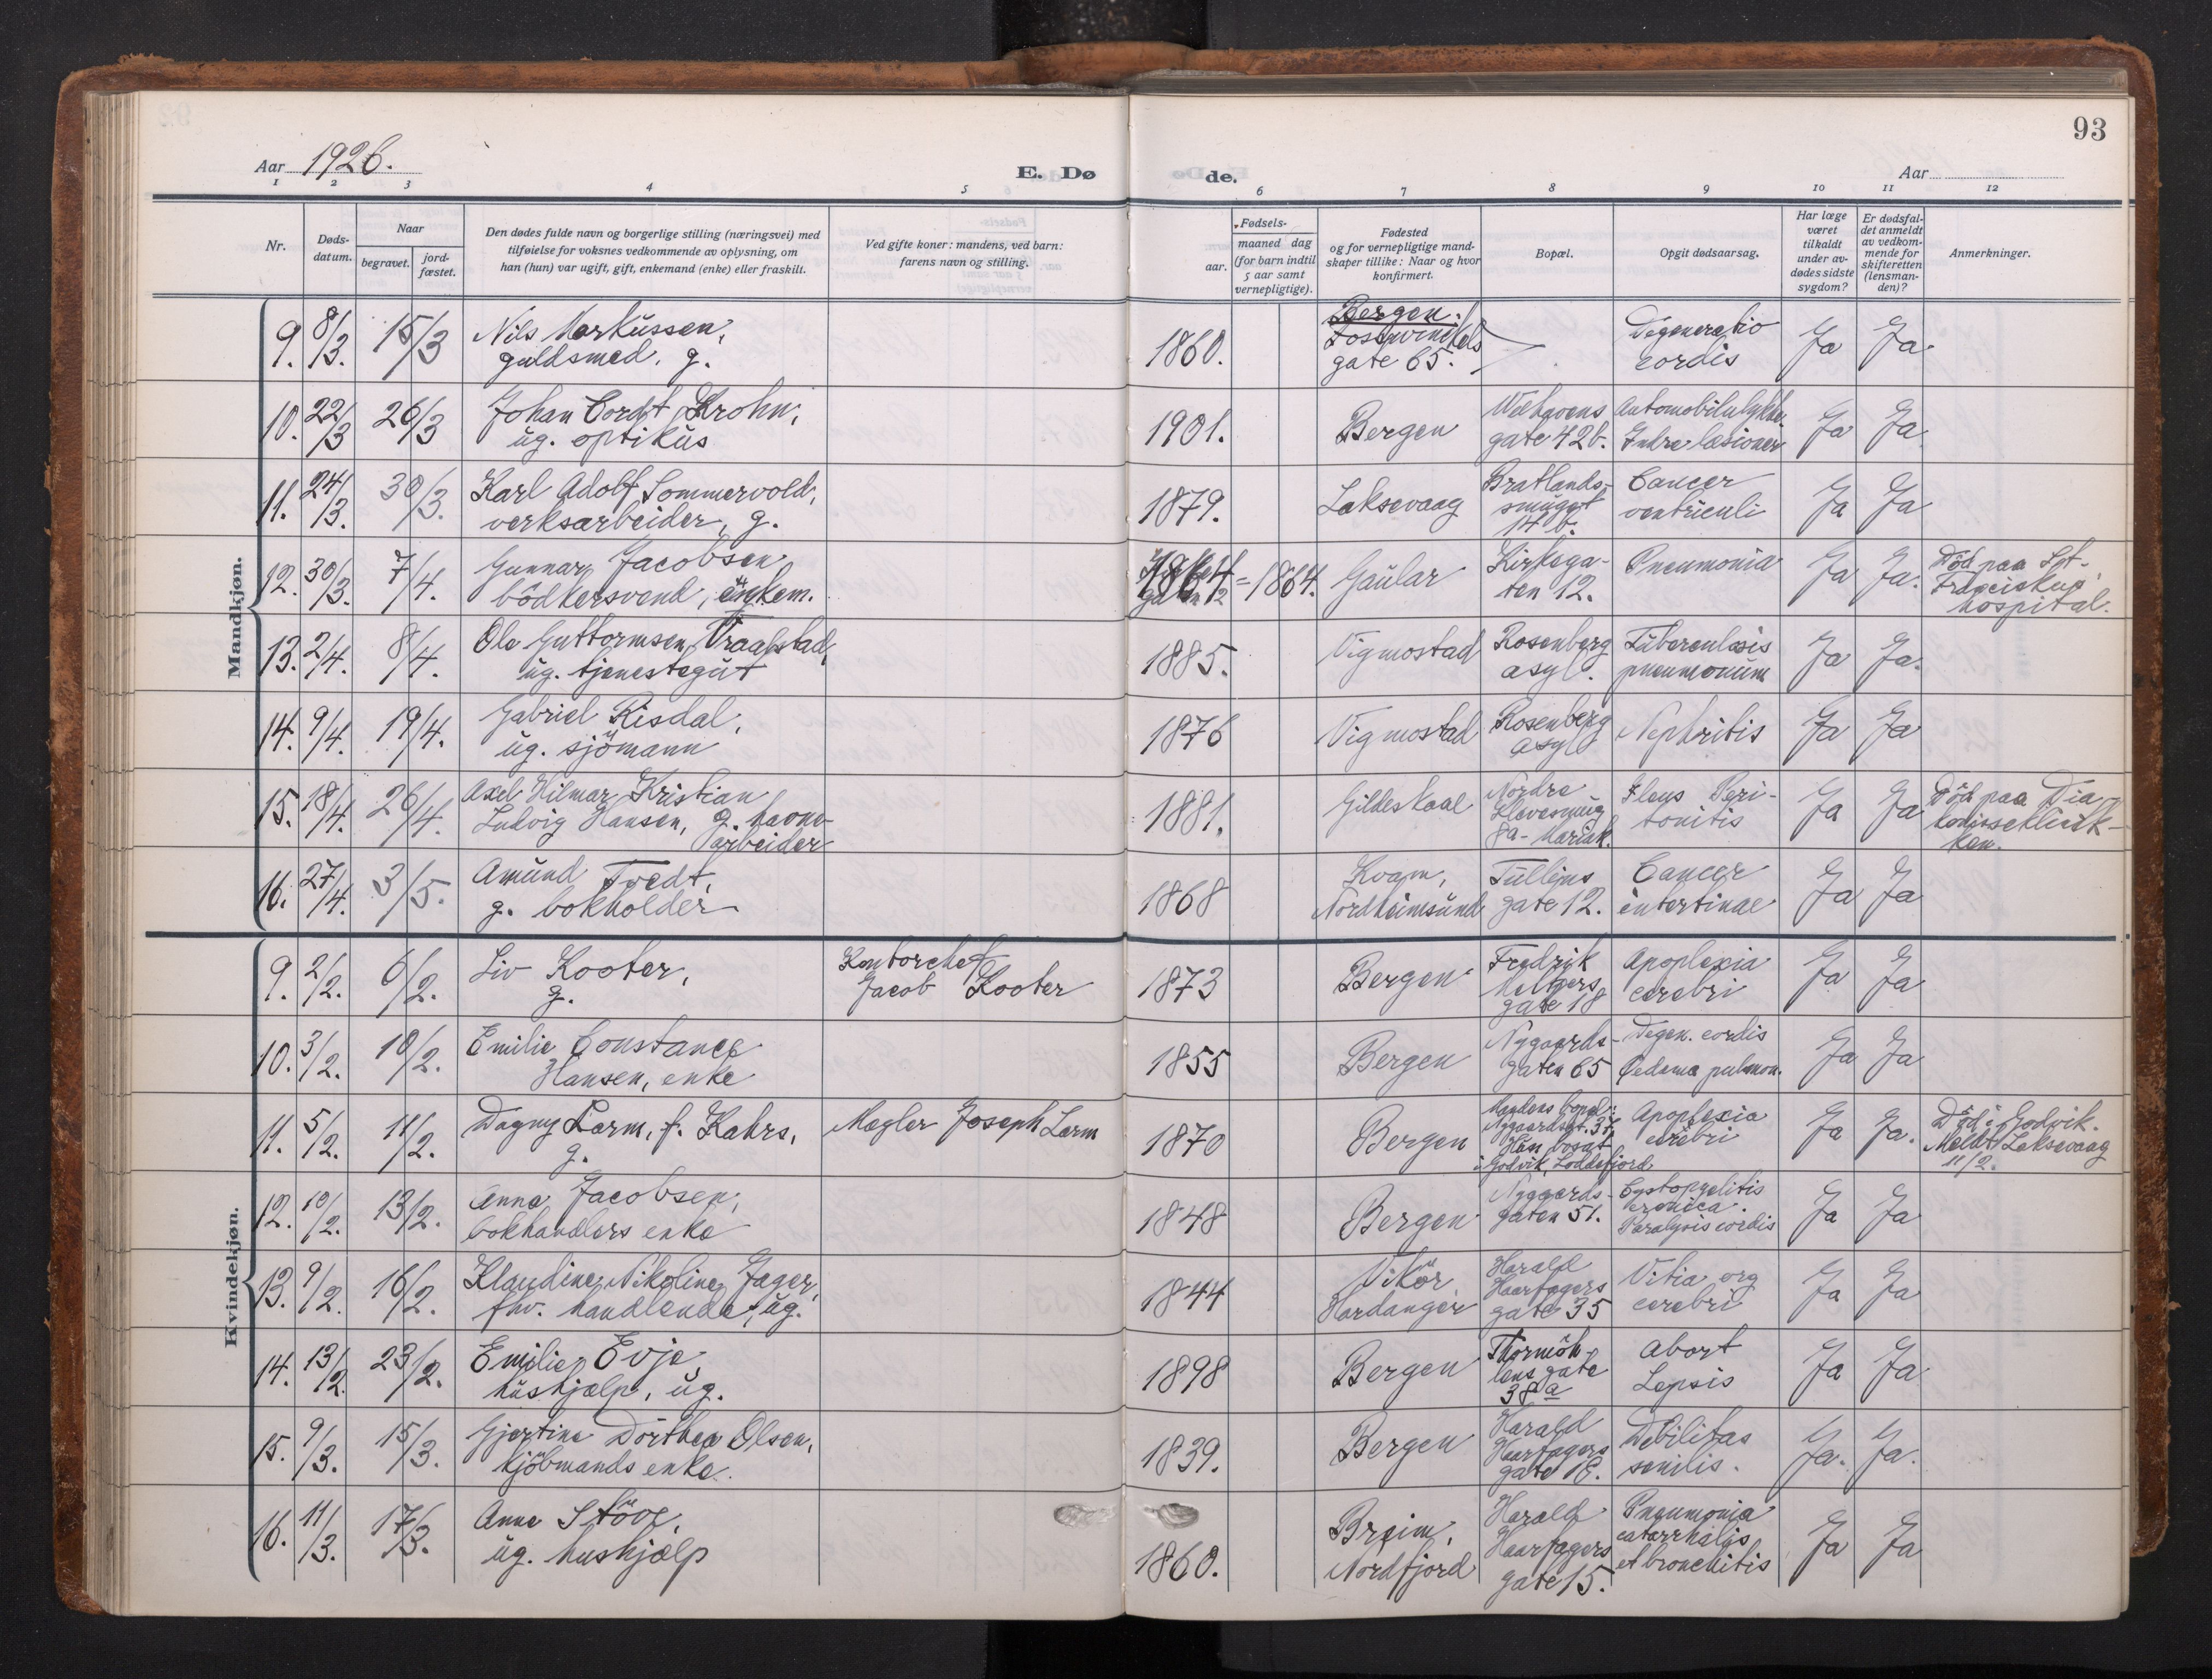 93
Aar 1926.
E. Dø
de.
Aar
1 2 3 4 5 6 7 8 9 10 11 12
Nr.
Døds-
datum.
Naar
begravet.
jord-
fæstet.
Den dødes fulde navn og borgerlige stilling (næringsvei) med
tilføielse for voksnes vedkommende av oplysning, om
han (hun) var ugift, gift, enkemand (enke) eller fraskilt.
Ved gifte koner: mandens, ved barn:
farens navn og stilling.
Fødsels-
aar.
maaned dag
(for barn indtil
5 aar samt
vernepligtige).
Fødested
og for vernepligtige mand-
skaper tillike: Naar og hvor
konfirmert.
Bopæl.
Opgit dødsaarsag.
Har læge
været
tilkaldt
under av-
dødes sidste
sygdom?
Er dødsfal-
det anmeldt
av vedkom-
mende for
skifteretten
(lensman-
den)?
Anmerkninger.
Mandkjøn.
9. 8/3. 15/3 Nils Markussen, 1860. Bergen. Degeneratio Ja Ja.
guldsmed. g. gate 65. cordis
10. 22/3 26/3 Johan Cordt Krohn, 1901. Bergen Welhavens Automobilulykke. Ja Ja
ug. optikus gate 42b. Indre læsioner
11. 24/3. 30/3. Karl Adolf Sommervold, 1879. Laksevaag Bratlands- Cancer Ja Ja
verksarbeider, g. smuget ventriculi
14 b.
12. 30/3. 7/4. Gunnar Jacobsen 1864 = 1864. Gaular Kirkega- Pneumonia Ja Ja. Död paa Set.
bödkersvend, enkem. ten 12. Franciskus
hospital.
13. 2/4. 8/4. Ole Guttormsen Vraalstad, 1885. Vigmostad Rosenberg Tuberculosis Ja Ja.
ug. tjenestegut asyl. pneumonium
14. 9/4. 19/4. Gabriel Risdal, 1876 Vigmostad Rosenberg Nephritis Ja Ja
ug. sjömann asyl
15. 18/4. 26/4. Axel Hilmar Kristian 1881. Gildeskaal Nordre Ileus Peri- Ja Ja Död paa Dia-
Ludvig Hansen, g. havne- Klevesmug tonitis
arbeider 8a - Mariak. ken.
16. 27/4. 3/5. Amund Tvedt, 1868 Kvam, Tullins Cancer Ja Ja
g. bokholder Nordheimsund gate 12. intertinae
Kvindekjøn.
9. 2/2. 6/2. Liv Kooter, Kontorchef 1873 Bergen Fredrik Apoplexia Ja Ja
g. Jacob Kooter Meltzers cerebri
gate 18
10. 3/2. 10/2. Emilie Constance 1855 Bergen Nygaards- Degen. cordis Ja Ja
Hansen, enke gaten 65 Oedema pulmon.
11. 5/2. 11/2. Dagny Larm, f. Kahrs, Mægler Joseph Larm 1870 Bergen Mandens bopæl: Apoplexia Ja Ja. Död i Godvik.
g. Nygaardsgt. 37. cerebri Meldt Laksevaag
Hun bosat 11/2.
i Godvik, Loddefjord.
12. 10/2. 13/2. Anna Jacobsen, 1848 Bergen Nygaards- Cystopyelitis Ja Ja
bokhandlers enke gaten 51. cronica.
Paralysis cordis
13. 9/2. 16/2. Klaudine Nikoline Jager, 1844 Vikör Harald Vitia org Ja Ja
fhv. handlende, ug. Hardanger Haarfagers cerebri
gate 35
14. 13/2. 23/2. Emilie Evje, 1898 Bergen Thormöh- Abort Ja Ja
hushjælp, ug. lens gate Sepsis
38a
15. 9/3. 15/3. Gjertine Dorthea Olsen, 1839. Bergen Harald Debilitas Ja. Ja.
kjöbmands enke. Haarfagers senilis.
gate 18.
16. 11/3. 17/3. Anne Stöve, 1860. Breim, Harald Pneumonia Ja Ja
ug. hushjælp Nordfjord Haarfagers catarrhalis
gate 15. et bronchitis